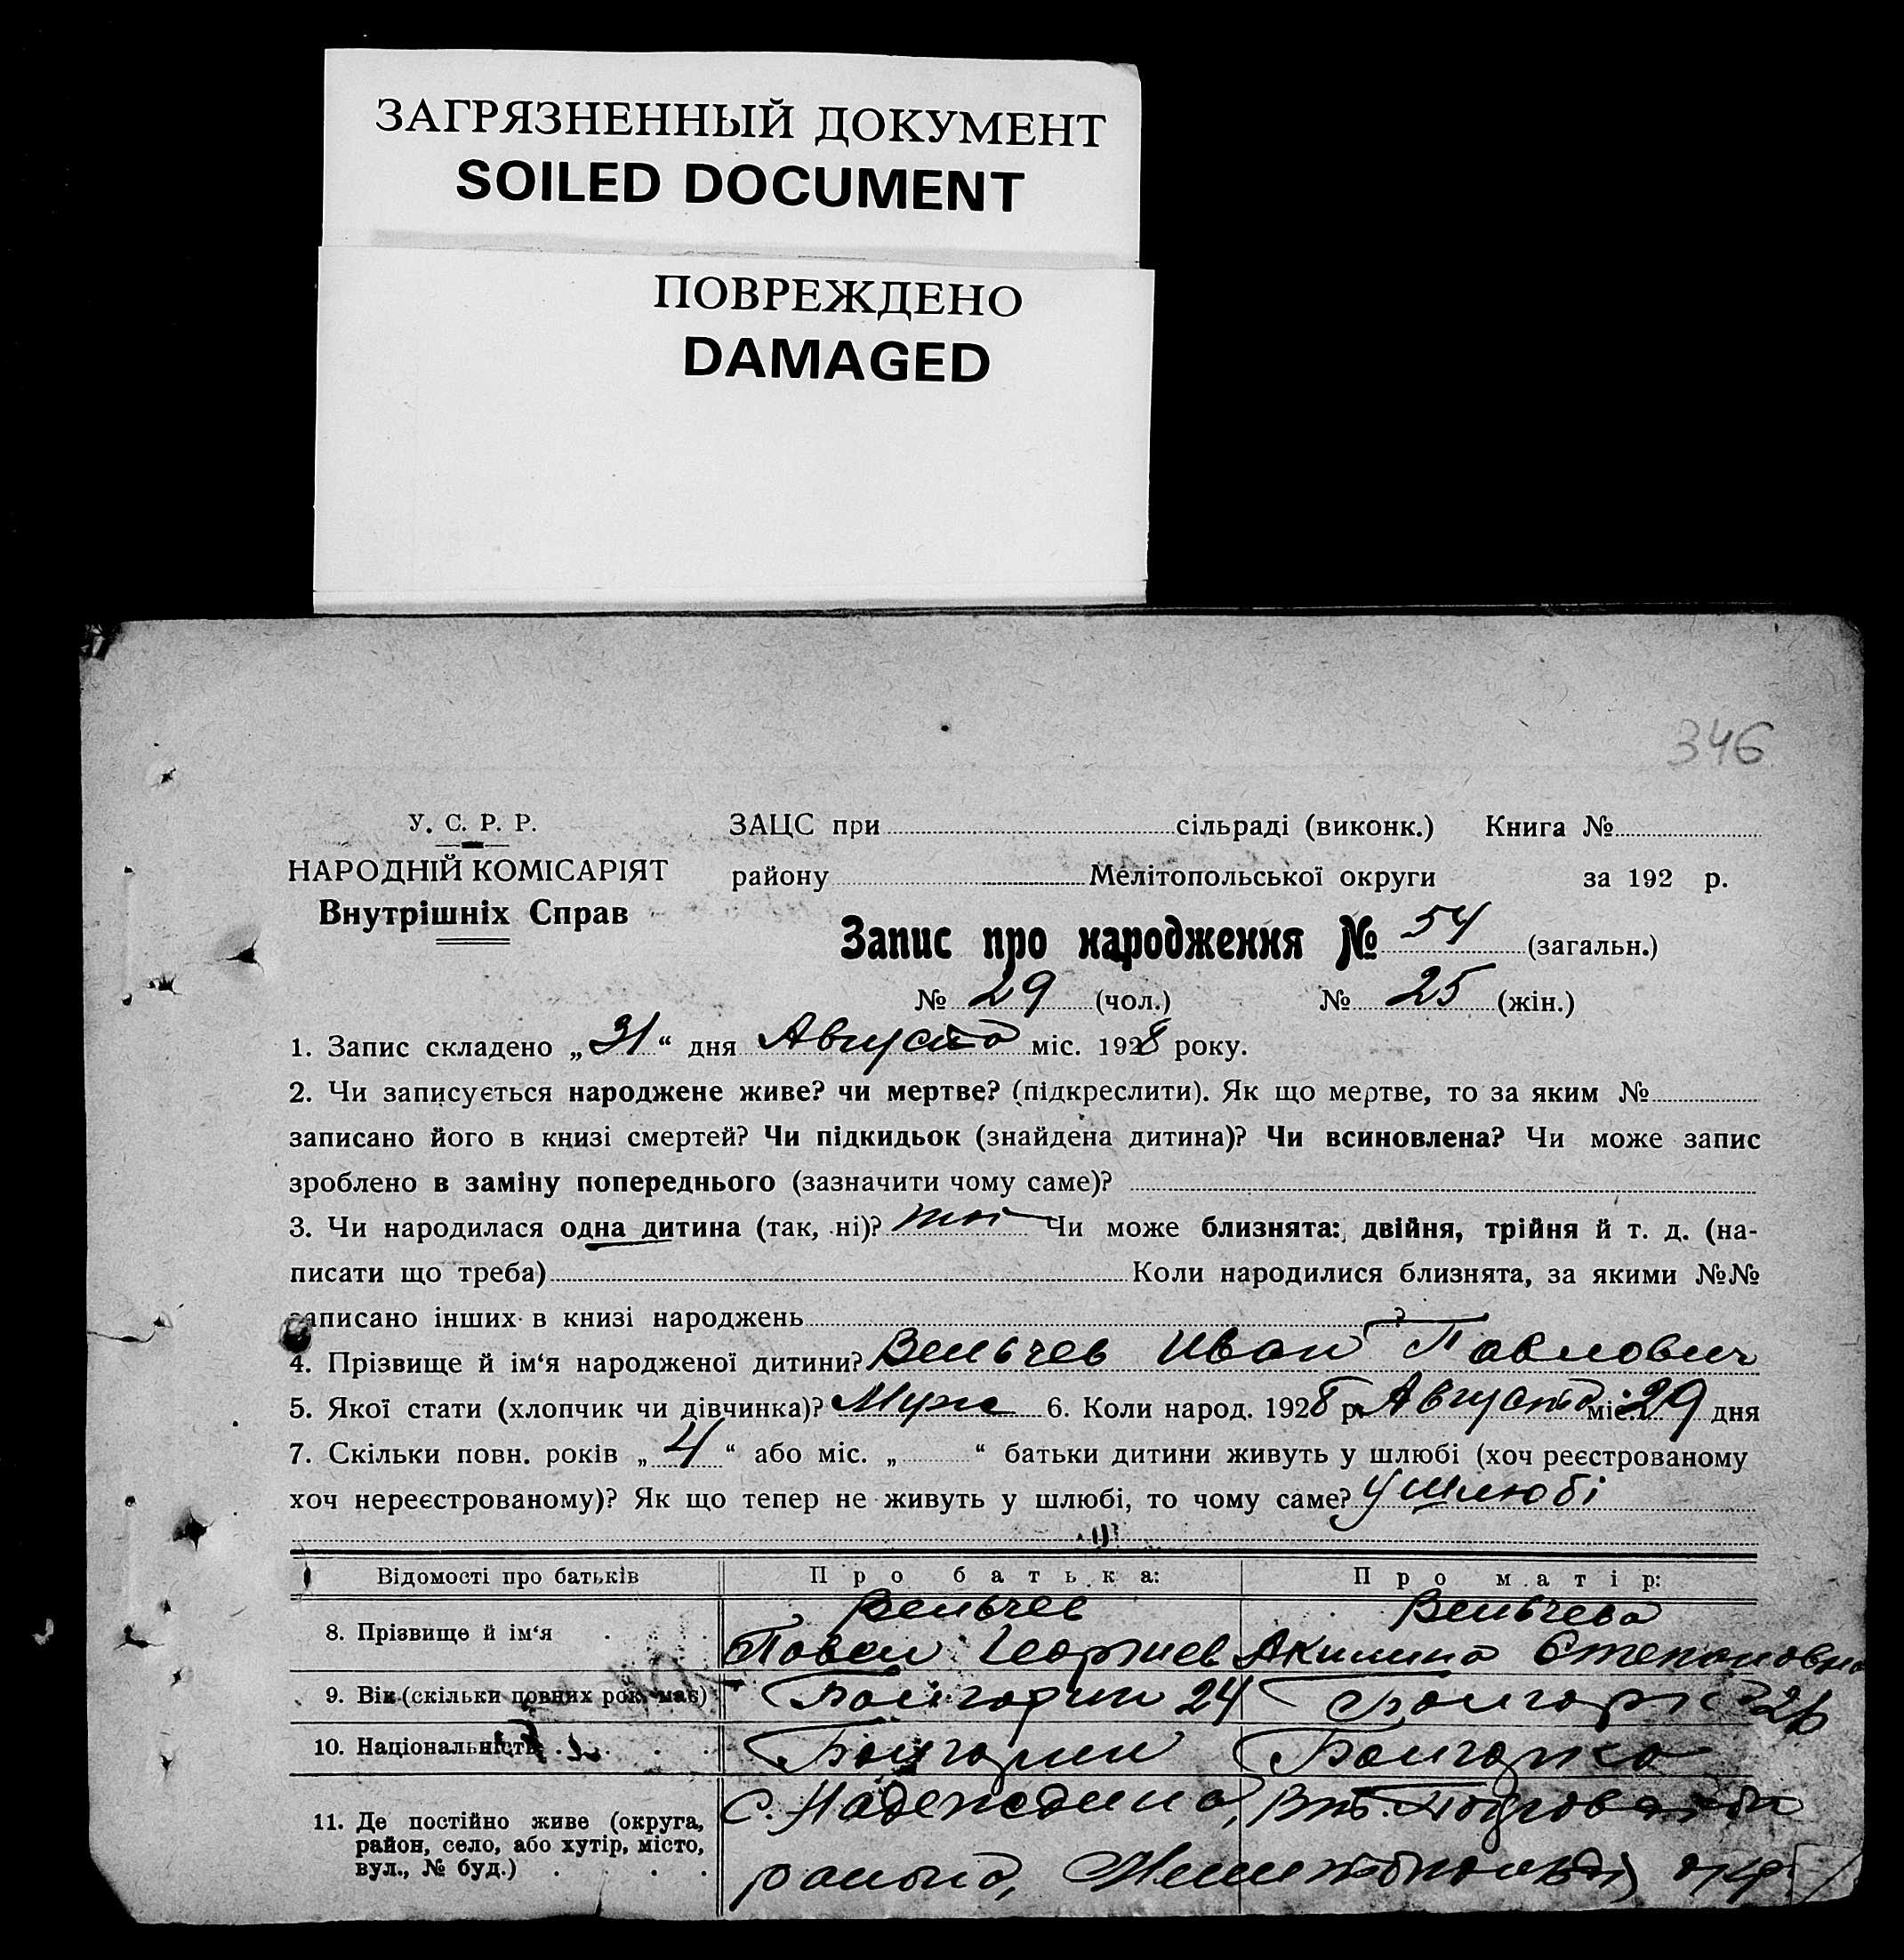 ЗАГРЯЗНЕННЫЙ ДОКУМЕНТ
SOILED DOCUMENT
ПОВРЕЖДЕНО
DAMAGED
346
У. С. Р. Р.
НАРОДНІЙ КОМІСАРІЯТ
Внутрішніх Справ
ЗАЦС при сільраді (виконк.) Книга №
району Мелітопольської округи за 192 р.
Запис про народження № 54 (загальн.)
№ 29 (чол.) № 25 (жін.)
1. Запис складено „31“ дня Августа міс. 1928 року.
2. Чи записується народжене живе? чи мертве? (підкреслити). Як що мертве, то за яким №
записано його в книзі смертей? Чи підкидьок (знайдена дитина)? Чи всиновлена? Чи може запис
зроблено в заміну попереднього (зазначити чому саме)?
3. Чи народилася одна дитина (так, ні)? Чи може близнята: двійня, трійня й т. д. (на-
писати що треба) Коли народилися близнята, за якими №№
записано інших в книзі народжень
4. Прізвище й ім‘я народженої дитини? Вельчев Иван Павлович
5. Якої стати (хлопчик чи дівчинка)? Муж 6. Коли народ. 1928 р. Августа міс. 29 дня
7. Скільки повн. років „4“ або міс. „ “ батьки дитини живуть у шлюбі (хоч реєстрованому
хоч нереєстрованому)? Як що тепер не живуть у шлюбі, то чому саме? У шлюбі
Відомості про батьків Про батька: Про матір:
8. Прізвище й ім‘я Вельчев Вельчева
Павел Георгиев Акилина Степановна
9. Вік (скільки повних рок. має) Болгарин 24 Болгарк 26
10. Національність Болгарин Болгарка
11. Де постійно живе (округа,
район, село, або хутір, місто,
вул., № буд.)
С. Надеждина,
района, окр.